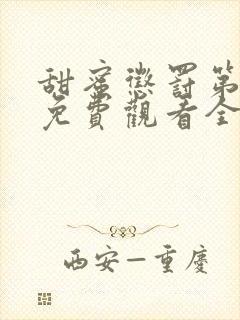 甜蜜懲罰第
免費觀看全
西安—重慶